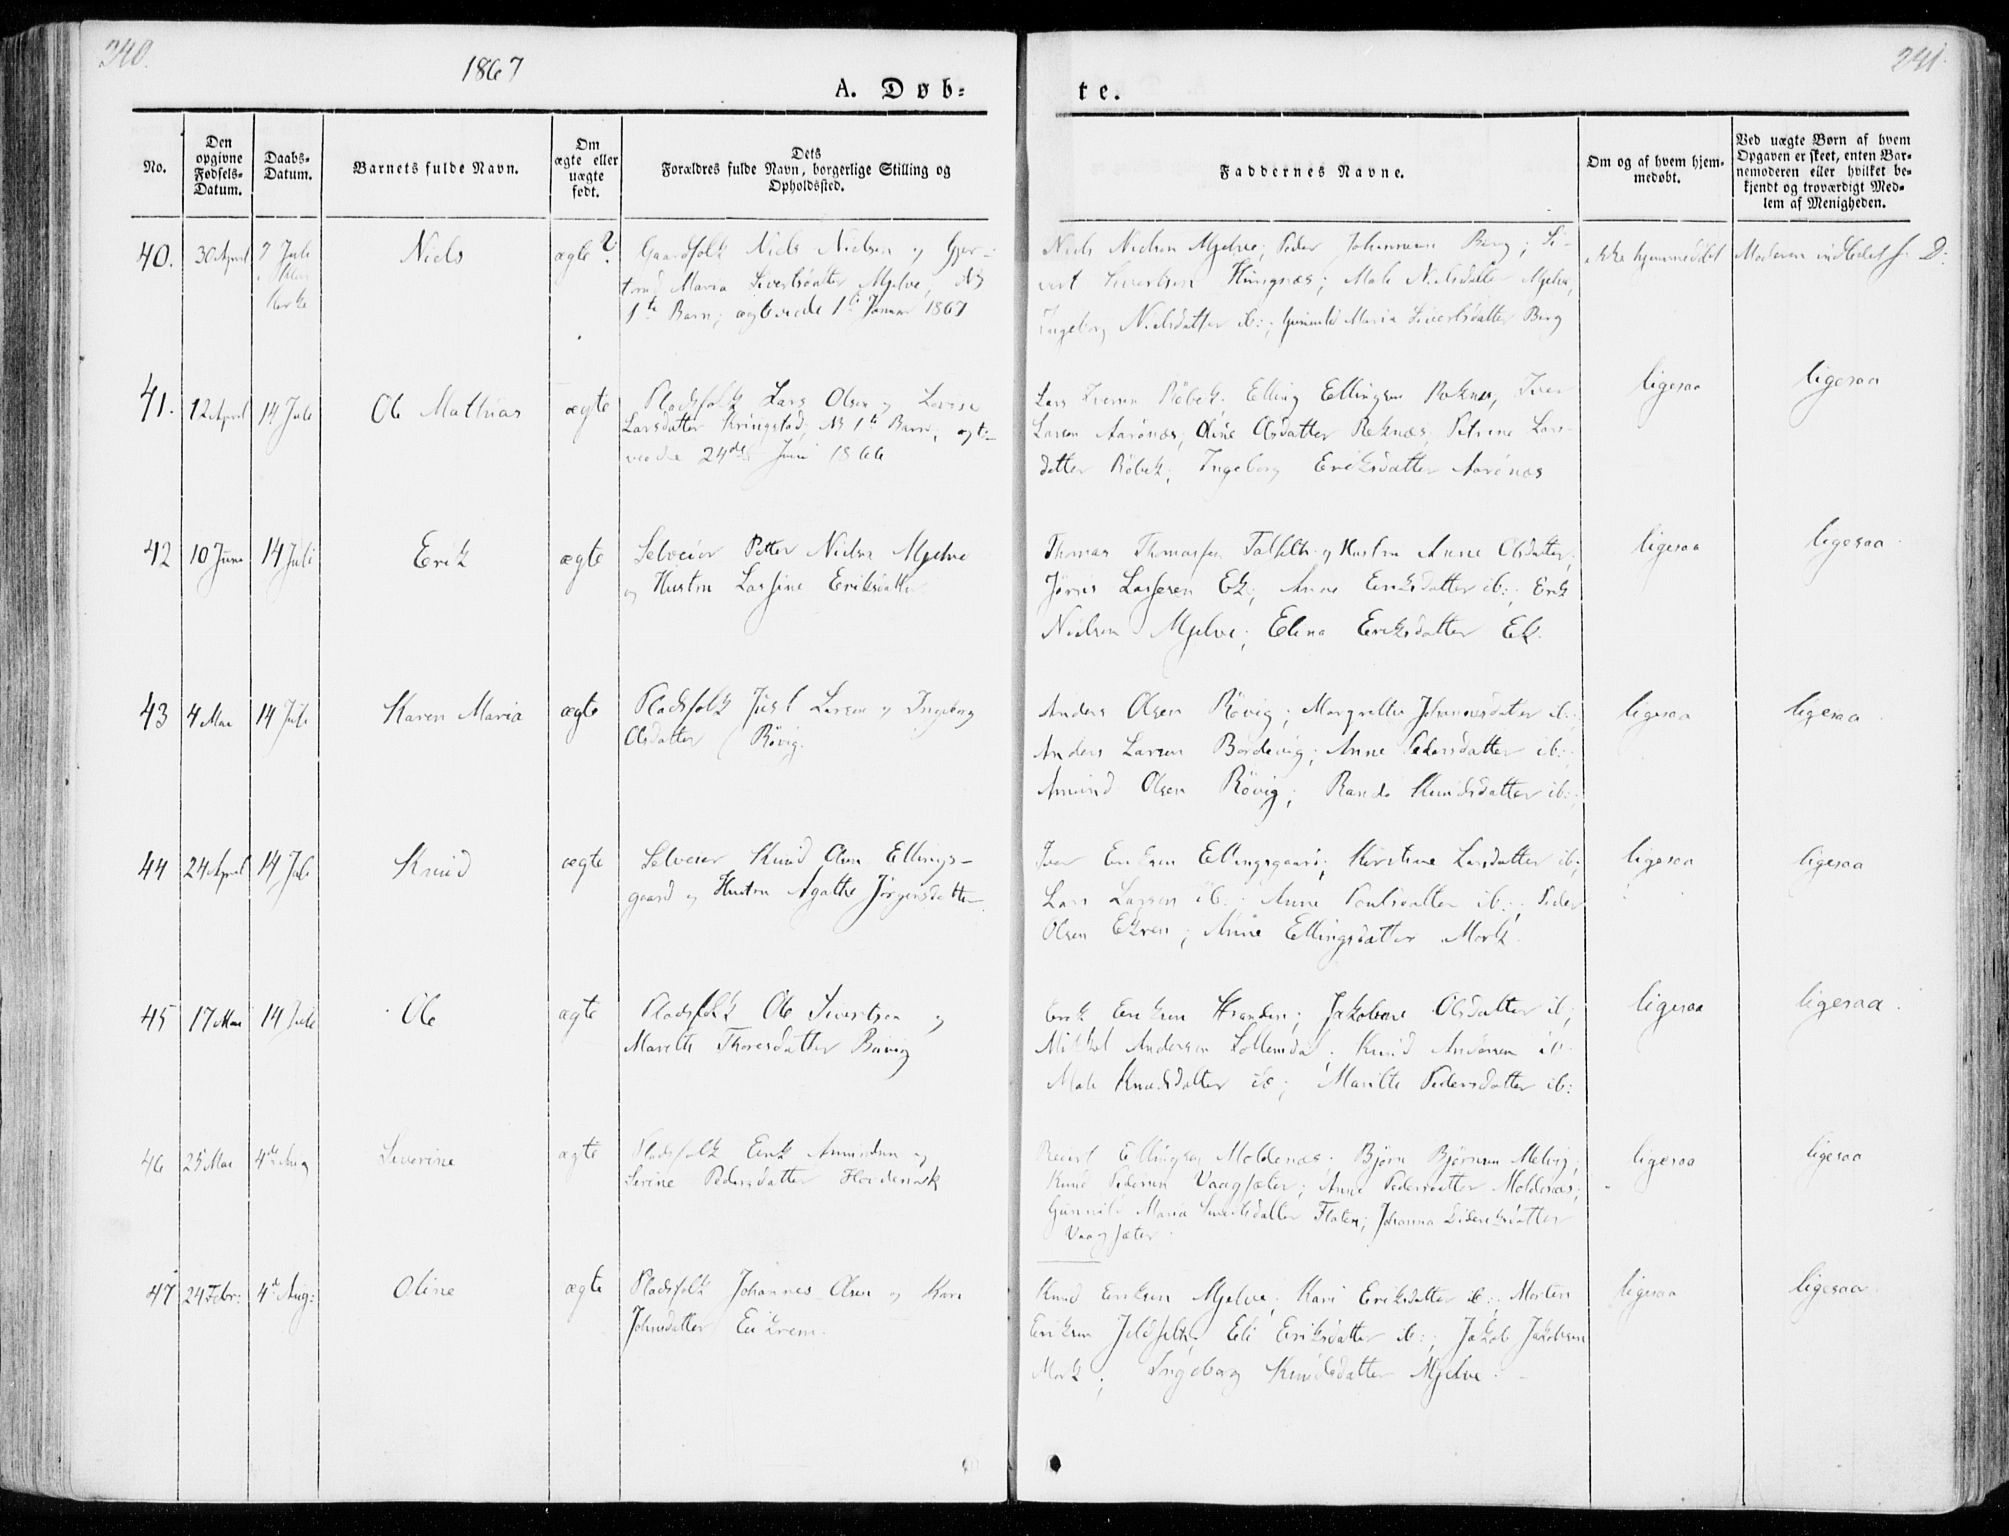 240.
1867
A. Døb=
te.
241.
No.
Den opgivne Fødsels=Datum.
Daabs=Datum.
Barnets fulde Navn.
Om ægte eller uægte født.
Dets Forældres fulde Navn, borgerlige Stilling og Opholdssted.
Faddernes Navne.
Om og af hvem hjem=medøbt.
Ved uægte Børn af hvem Opgaven er skeet, enten Bar=nemoderen eller hvilket be=kjendt og troværdigt Med=lem af Menigheden.
40. 30 April 7 Juli
Kirke
Niels
ægte?
Gaardfolk Niels Nielsen og Gjer-
trud Maria Sivertsdatter Mjelve, NB
1te Barn; ægteviede 1te Januar 1867
Niels Nielsen Mjelve; Peder Johannesen Berg; Si-
vert Sivertsen Hungnæs; Male Nielsdatter Mjelve,
Ingeborg Nielsdatter ib:; Gunnild Maria Sivertsdatter Berg
ikke hjemmedøbt
Moderen indledet s. D:
41. 12 April 14 Juli
Ole Mathias
ægte
Pladsfolk Lars Olsen og Lovise
Larsdatter Kringstad, NB 1te Barn, ægte-
viede 24de Juni 1866
Lars Iversen Røbek; Elling Ellingsen Reknes, Iver
Larsen Aarønæs; Oline Olsdatter Reknæs, Petrine Lars-
datter Røbek; Ingeborg Eriksdatter Aarønæs
ligesaa
ligesaa
42 10 Juni 14 Juli
Erik
ægte
Selveier Petter Nielsen Mjelve
og Hustru Lassine Eriksdatter
Thomas Thomassen og Hustru Anne Olsdatter;
Lassesen Ek; Anne Eriksdatter ib:; Erik
Nielsen Mjelve; Elena Eriksdatter Ek.
ligesaa
ligesaa
43 4 Mai 14 Juli
Karen Maria
ægte
Pladsfolk Just Larsen og Ingeborg
Olsdatter Røvig.
Anders Olsen Røvig; Margrethe Johannesdatter ib:;
Anders Larsen Bordevig; Anne Pedersdatter ib:;
Amund Olsen Røvig; Randi Knudsdatter ib:;
ligesaa
ligesaa
44 24 April 14 Juli
Knud
ægte
Selveier Knud Olsen Ellings-
gaard og Hustru Agathe Jørgensdatter
Iver Eriksen Ellingsgaard; Kirstine Larsdatter ib;
Lars Larsen ib:; Anne Paulsdatter ib:; Peder
Olsen Ekren; Anne Ellingsdatter Mork.
ligesaa
ligesaa
45 17 Mai 14 Juli
Ole
ægte
Pladsfolk Ole Sivertsen og
Marethe Thoresdatter
Erik Eriksen Stranden; Jakobine Olsdatter ib;
Mikkel Andersen; Knud Andersen ib
Male Knudsdatter ib; Marithe Pedersdatter ib:
ligesaa
ligesaa
46 25 Mai 4de Aug
Severine
ægte
Pladsfolk Erik Amundsen og
Serine Pedersdatter Hovdenak
Ellingsen Moldenæs; Bjørn Bjørnsen Melvig;
Knud Pedersen Vaagsæter; Anne Pedersdatter Moldenæs;
Gunnild Maria Sivertsdatter Flaten; Johanna Dideriksdatter
Vaagsæter
ligesaa
ligesaa
47 24 Febr: 4de Aug:
Oline
ægte
Pladsfolk Johannes Olsen og Kari
Johnsdatter Eikrem.
Knud Eriksen Mjelve; Kari Eriksdatter ib:; Morten
Eriksen; Eli Eriksdatter ib:; Jakob Jakobsen
Mork; Ingeborg Knudsdatter Mjelve.
ligesaa
ligesaa